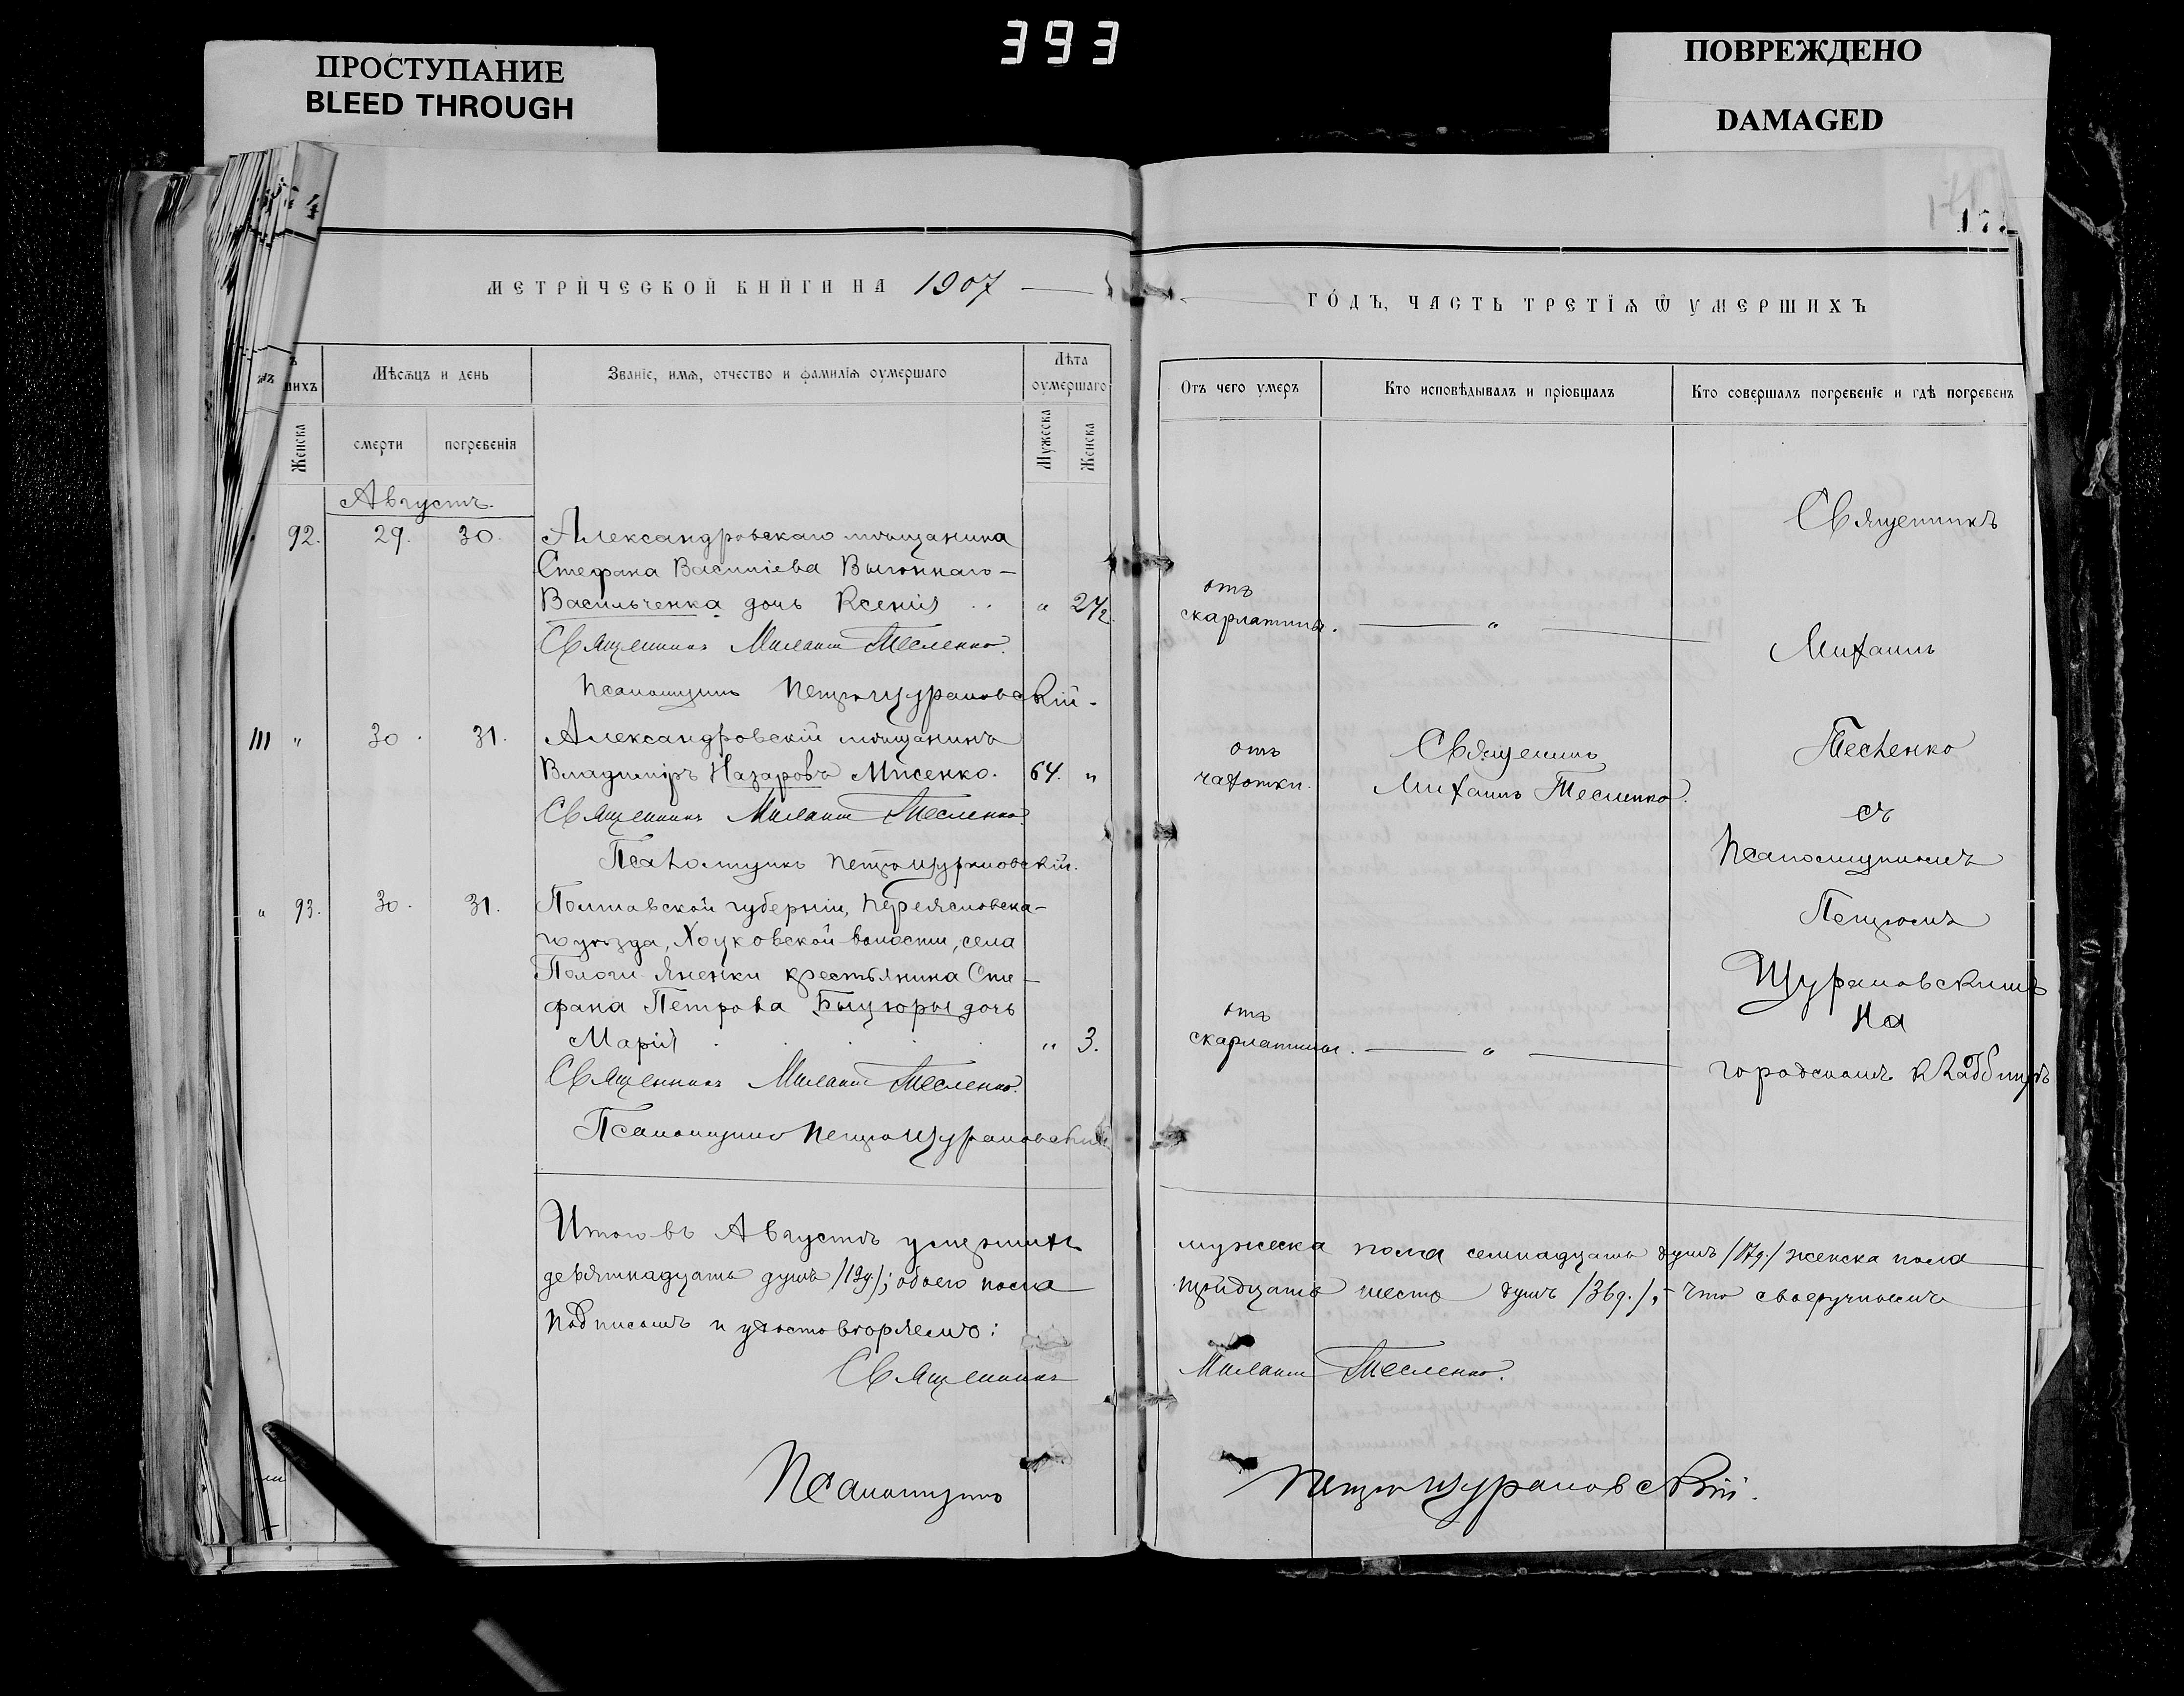 393
ПРОСТУПАНИЕ
BLEED THROUGH
ПОВРЕЖДЕНО
DAMAGED
МЕТРИЧЕСКОЙ КНИГИ НА 1907
Мѣсяцъ и день
Званіе, имя, отчество и фамилія оумершаго
Лѣта оумершаго
Женска
смерти
погребенія
Мужеска
Женска
Августъ.
92. 29. 30. Александровскаго мѣщанина
Стефана Василіева Выгоннаго-
Васильченка дочь Ксенія " 2 1/2
Священникъ Михаилъ Тесленко.
Псаломщикъ Петръ Щурановскій.
111 " 30. 31. Александровскій мѣщанинъ
Владиміръ Назаровъ Мисенко. 64. "
Священникъ Михаилъ Тесленко.
Псаломщикъ Петръ Щурановскій.
" 93. 30. 31. Полтавской губерніи, Переяславска-
го уѣзда, волости, села
Пологи Яненки крестьянина Сте-
фана Петрова дочь
Марія " 3.
Священникъ Михаилъ Тесленко.
Псаломщикъ Петръ Щурановскій
Итого въ Августѣ умершихъ
девятнадцать душъ /19д/; обоего пола
подписомъ и удостовѣряемъ:
Священникъ
Псаломщикъ
ГОДЪ, ЧАСТЬ ТРЕТІЯ Ѿ УМЕРШИХЪ
Отъ чего умеръ
Кто исповѣдывалъ и пріобщалъ
Кто совершалъ погребеніе и гдѣ погребенъ
отъ
скарлатины. "
отъ
чахотки.
Священникъ
Михаилъ Тесленко.
отъ
скарлатины. "
Священникъ
Михаилъ
Тесленко
съ
Псаломщикомъ
Петромъ
Щурановскимъ
на
городскомъ кладбищѣ
мужеска пола семнадцать душъ /17д./ женска пола
тридцать шесть душъ /36д./, - что своеручнымъ
Михаилъ Тесленко.
Петръ Щурановскій.